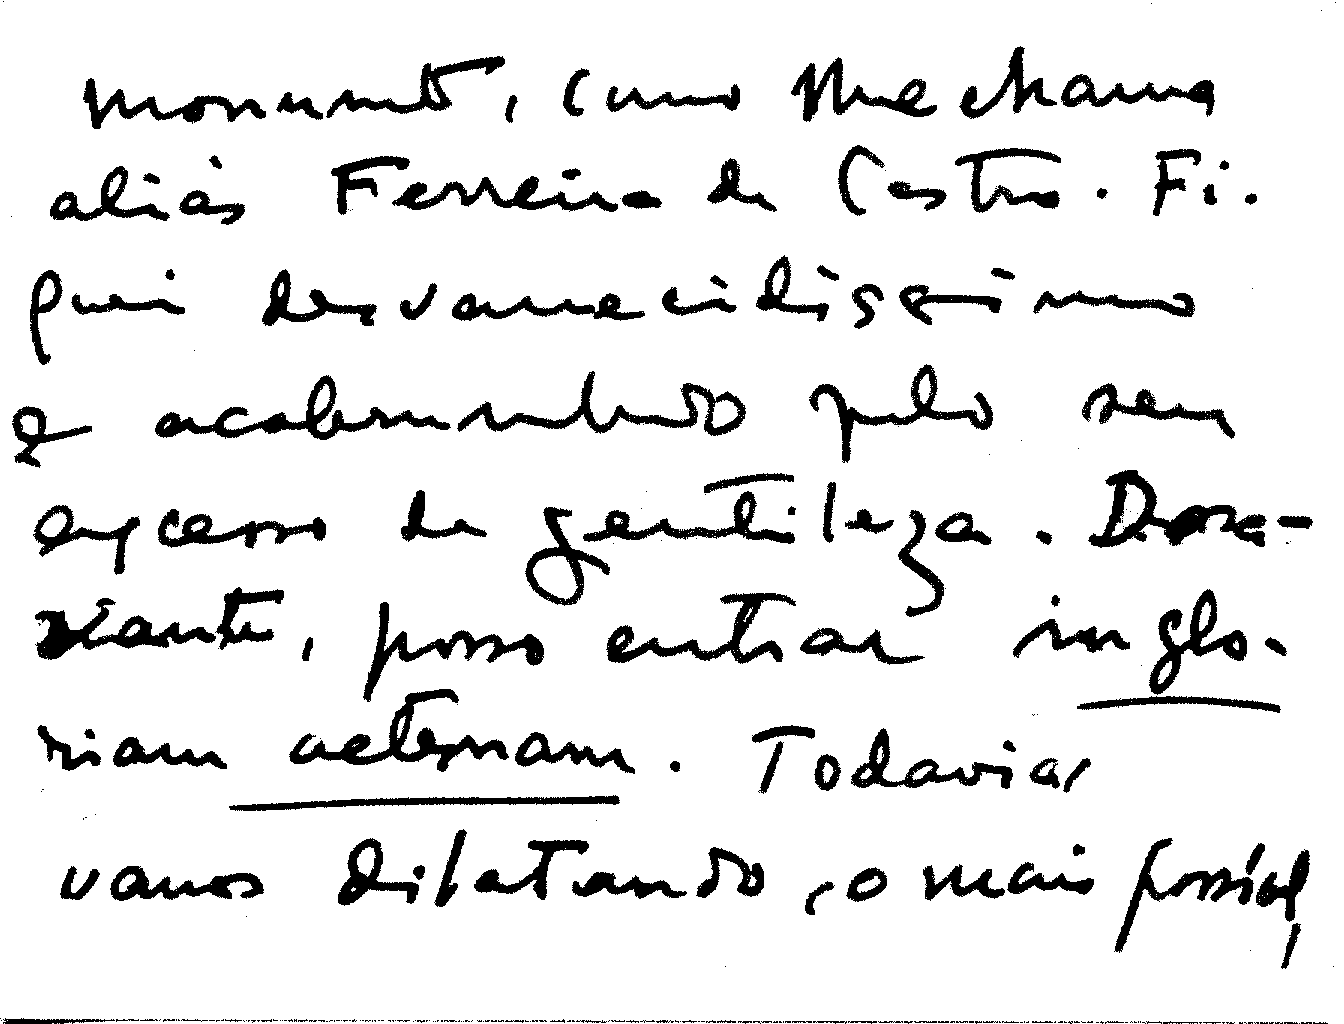 monumento, como me chama
aliás Ferreira de Castro. Fi-
quei desvanecidissimo
e acabrunhado pelo seu
excesso de gentileza. Dora-
vante, posso entrar in glo-
riam aeternam. Todavia,
vamos dilatando, o mais possível,